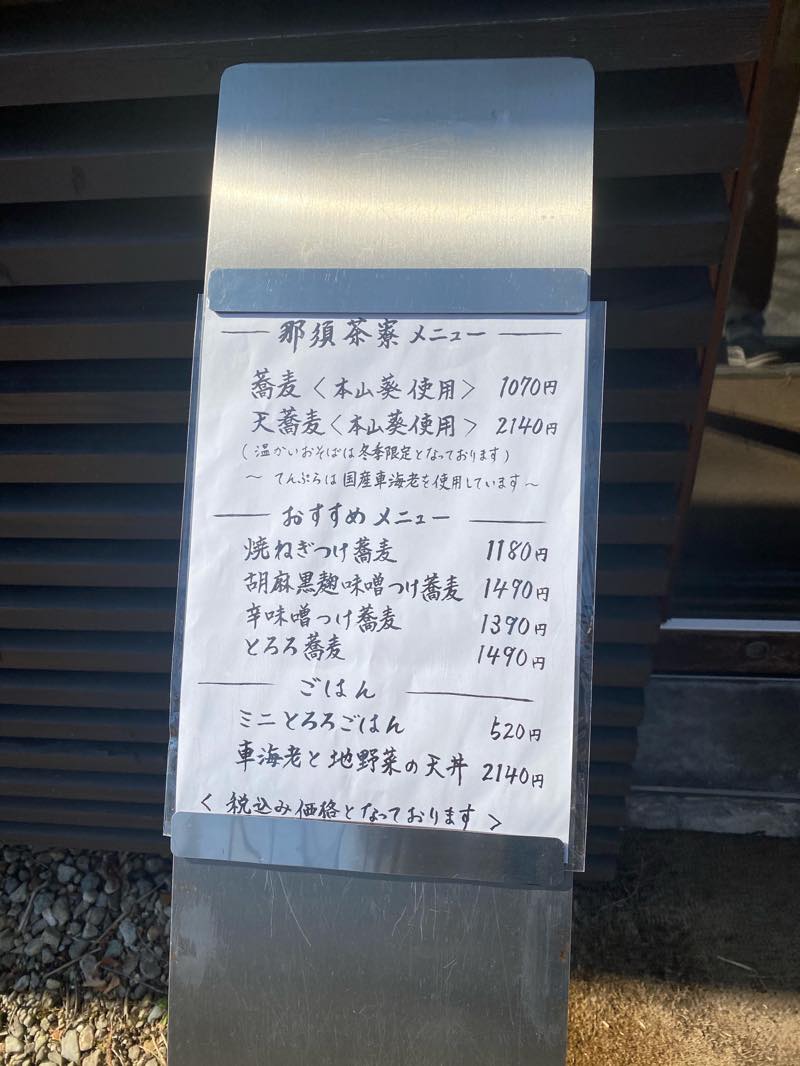 那須茶寮メニュー
蕎麦〈本山葵使用〉 1070円
天蕎麦〈本山葵使用〉 2140円
(温かいおそばは冬季限定となっております)
～てんぷらは国産車海老を使用しています～
おすすめメニュー
焼ねぎつけ蕎麦 1180円
胡麻黒麹味噌つけ蕎麦 1490円
辛味噌つけ蕎麦 1390円
とろろ蕎麦 1490円
ごはん
ミニとろろごはん 520円
車海老と地野菜の天丼 2140円
〈税込み価格となっております〉